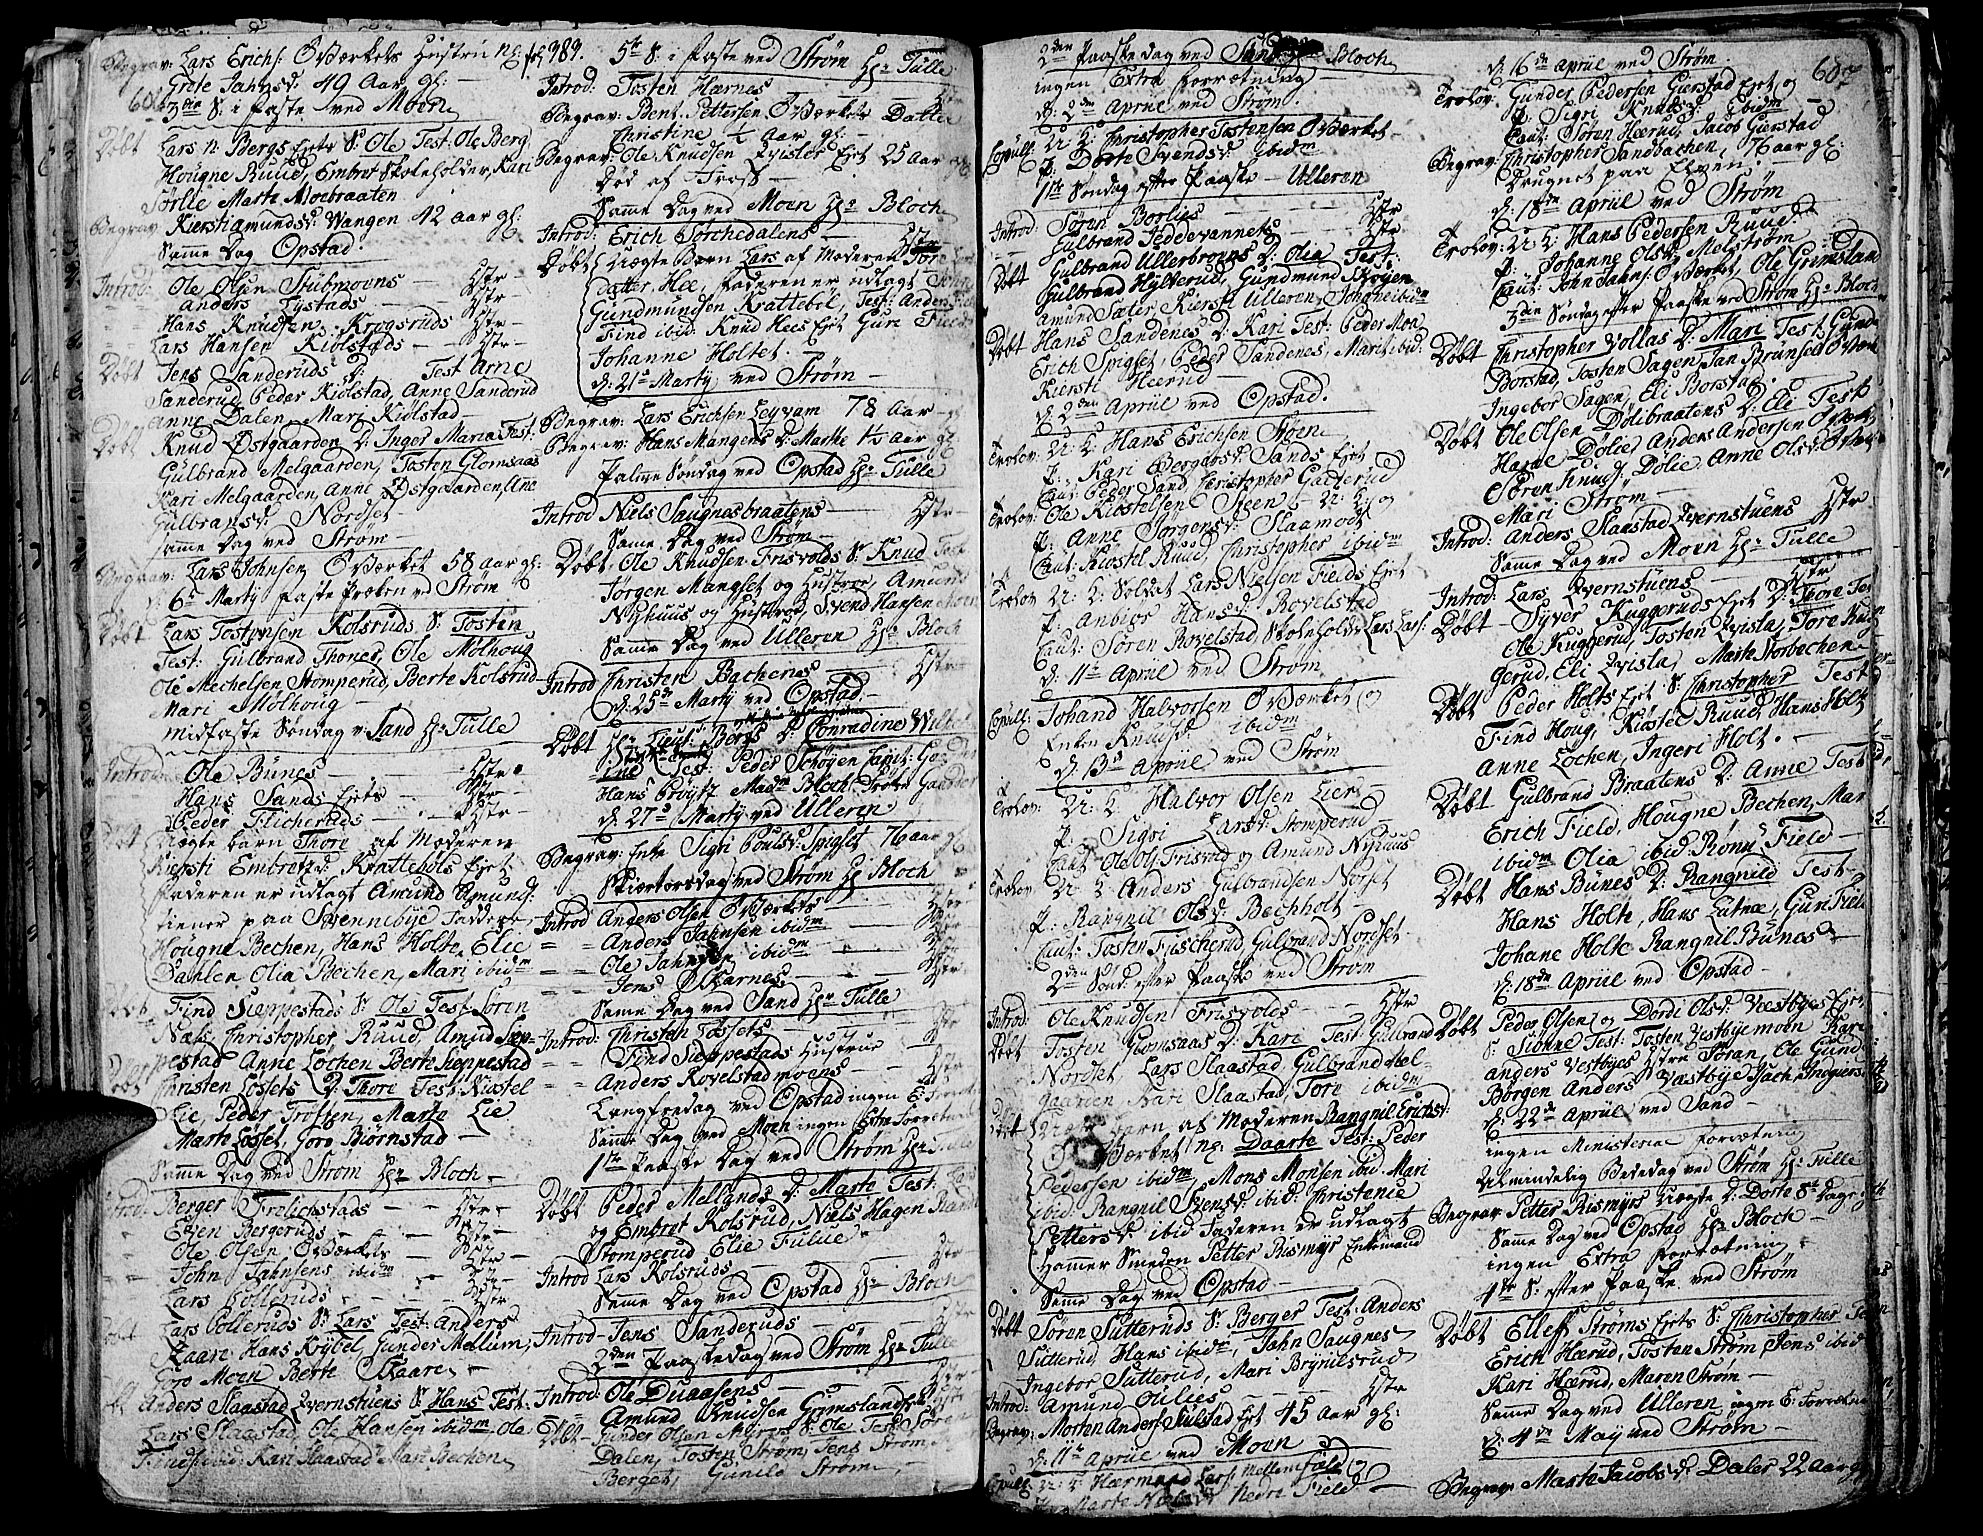 Begrav: Lars Erichs: O Værkets Hustru
Grete Jahnsd: 49 Aar gl:
3die S: i faste ved Moen
Døbt Lars n: Bergs Ejets S: Ole Test: Ole Berg
Hougne Ruud, Embret Skoleholder, Kari
Sørlie Marte Moebraaten
Begrav: Wangen 42 aar gl:
Samme Dag Opstad
Introd: Ole Olsen Stubmoens Hstr
Anders Tystads Hstr
Hans Knudsen Krogsruds Hstr
Lars Hansen Kiolstads Hstr
Døbt Jens Sanderuds D: Test Arne
Sanderud, Peder Kiolstad, Anne Sanderud
Anne Dalen, Mari Kiolstad
Døbt Knud Østgaarden D: Inger Maria Test:
Gulbrand Melgaarden, Tosten Glomsaas
Kari Melgaarden, Anne Østgaarden, Ane
Gulbransd: Nordset
Samme Dag ved Strøm
Begrav: Lars Johnsen O Værket 58 aar gl:
6te Marty faste Præken ved Strøm
Døbt Lars Tostensen Kolsruds S: Tosten
Test: Gulbrand Thoner, Ole Mølhoug
Ole Mechelsen Stomperud, Berte Kolsrud
Mari Mølhoug
Midfaste Søndag v: Sand Hr Tulle
Introd: Ole Bunes Hstr
Hans Sands Ejets Hstr
Peder Flicheruds Hstr
Uægte barn Thore af Moderen
Kiersti Embretsd: Krattebøls Ejet
Faderen er udlagt Amund Amunds:
tiener paa Svennebye Faddere
Hougne Bechen, Hans Holte, Elie
Dahlen Olia Bechen, Mari ibidm
Døbt Find Sieppestads S: Ole Test: Søren
Næs Christopher Ruud, Amund Siep-
pestad Anne Lochen Berte Sieppestad
Christen Løsets D: Thore Test: Kiostel
Lie, Peder Trøften, Marte Lie
Marte Løsset, Goro Biørnstad
Samme Dag ved Strøm Hr Bloch
Introd: Berger Frølichstads Hstr
Even Bergeruds Hstr
Ole Olsen O Værkets Hstr
John Jahnsens ibidm Hstr
Lars Polleruds Hstr
Døbt Lars Polleruds S: Lars Test: Anders
Skaare Hans Krystel, Gunder Mellum,
Goro Moen Berte Skaare
Anders Slaastad Qvernstuens S: Hans Test:
Lars Slaastad, Ole Hansen ibidm Ole
Finds: ibid: Kari Slaastad Mari Bechen
1789. 5te S: i faste ved Strøm Hr Tulle
Introd: Tosten Hærnes Hstr
Begrav: Bent Pettersen O Værkets Datter
Christine ½ Aar gl:
Begrav: Ole Knudsen Qvisler Ejet 25 Aar
Død af
Samme Dag ved Moen Hr Bloch
Introd: Erich Sorchedalens Hstr
Døbt Uægte Barn Lars af Moderen Tore
datter Hee, Faderen er udlagt
Gundmundsen Krattebøl, Test: Anders
Find ibid: Knud Hees Ejet Guri
Johanne Holtet.
d: 21de Marty ved Strøm
Begrav: Lars Erichsen Leyram 78 Aar
Begrav: Hans Mangens D: Marthe
Palme Søndag ved Opstad Hr Tulle
Introd Niels Saugnesbraatens Hstr
Samme Dag ved Strøm
Døbt Ole Knudsen Frisvolds S: Knud Test
Jørgen Mangset og Hustroe, Amund
Nyhuus og Hustroe, Svend Hansen
Samme Dag ved Ulleren Hr Bloch
Introd Christen Bachenes Hstr
d: 25de Marty ved Opstad
Døbt Hr Lieut: Bergs D: Conradine
Test: Peder Schøyen Capit:
Hans Crøytz Madm Bloch
d: 27de Marty ved Ulleren
Begrav: Enke Sigri Pouls: Spigset 76 aar gl
Skiærtorsdag ved Strøm Hr Bloch
Introd Anders Olsen O Værkets Hstr
Anders Jahnsen ibidm Hstr
Ole Jahnsen ibidm Hstr
Jens Skarnes Hstr
Samme Dag ved Sand Hr Tulle
Introd: Christen Løssets Hstr
Find Sieppestads Hustrue
Anders Rovelstadmoens Hstr
Langfredag ved Opstad ingen E: Forretn
Samme Dag ved Moen ingen Extra Forretn
1ste Paaske Dag ved Strøm Hr
Døbt Peder Mellands D: Marte Test:
og Embret Kolsrud, Niels Hagen
Stomperud Elie Fulue
Introd Lars Kolsruds Hstr
Samme Dag ved Opstad Hr Bloch
Introd Jens Sanderuds Hstr
2den Paaskedag ved Strøm Hr Tulle
Introd: Ole Duaasens
Amund Knudsen Grimslands
Døbt Gunder Olsen Myres S: Ole Test: Søren
Dalen, Tosten Strøm, Jens Strøm
Berget, Gunild Strøm
2den Paaske Dag ved Bloch
ingen Extra forretning
d: 2den Aprül ved Strøm.
Copul: U: K: Christopher Tostensen O Værket
P: Dorte Svendsd: ibidm
1ste Søndag efter Paaske Ulleren
Introd: Søren Borlies Hstr
Gulbrand Jeddevannets Hstr
Døbt Gulbrand Ullerbroens D: Olia Test:
Gulbrand Hylterud, Gundmund Skoyen
Amund Sæter Kiersti Ulleren, ibidm
Døbt Hans Sandenes D: Kari Test: Peder Moe
Erich Spigset, Peder Sandenes, Marit ibid:
Kiersti Heerud
d: 2den Aprül ved Opstad.
Trolov: U: K: Hans Erichsen Stoen
P: Kari Bergersd: Sands Ejet
Caut: Peder Sand, Christopher Gachterud
Trolov: Ole Kiostelsen Steen U: K: og
P: Anne Jørgensd: Slaamoet
Caut: Kiostel Ruud, Christopher ibidm
Trolov U: K: Soldat Lars Nielsen Fields Ejet
P: Anbiør Hansd: Rovelstad
Caut: Søren Rovelstad, Skoleholder Lars Lars:
d: 11te Aprül ved Strøm
Copul: Johand Halvorsen O Værket og
Enken Knudsd: ibidm
d: 13de Aprül ved Strøm
Trolov: U: K: Halvor Olsen Lier
P: Sigri Larsd: Stomperud
Caut Ole Ols: Frisvold og Amund Nyhuus
Trolov U: K: Anders Gulbrandsen Norset
P: Rangnil Olsd: Bechholt
Caut: Tosten Fischerud, Gulbrand Nordset
2den Sond: efter Paaske ved Strøm
Introd: Ole Knudsen Frisvolds Hstr
Døbt Tosten Glomsaas D: Kari Test: Gulbrand
Nordset Lars Slaastad, Gulbrand Mel
gaarden Kari Slaastad, Tore ibidm
Døbt Uægte barn af Moderen Rangnil Erichsd:
O Værket ng: Daarte Test: Peder
Pedersen ibidm Mons Monsen ibid: Mari
ibid: Rangnil Svensd: ibid: Christenie
Pettersd: ibid Faderen er udlagt
Hammer Smeden Petter Rismyr Enkemand
Samme Dag ved Opstad
Døbt Søren Sutteruds S: Berger Test: Anders
Sutterud, Hans ibidm, John Saugnes
Ingebor Sutterud, Mari Brynilsrud
Introd: Amund Oulies Hstr
Begrav: Morten Anders: Skulstad Ejet 45 Aar gl:
d: 11te Aprül ved Moen
Copul: U: K: Hærmand Lars: Mellemfald og
P: Marte Nedre Field
d: 16de Aprül ved Strøm 603
Trolov: Gunder Pedersen Gierstad Ejet og
P: Sigri Knudsd: Ibidm
Caut: Søren Hærud, Jacob Gierstad
Begrav: Christopher Sandbachen, 76 aar gl:
Drugnet paa Elven
d: 18de Aprül ved Strøm
Trolov: U: K: Hans Pedersen Ruud
P: Johanne Olsd: Melstrøm
Caut: John Jahns: O Værket, Ole Grimsland
3die Søndag efter Paaske ved Strøm Hr Bloch
Døbt Christopher Vollas D: Mari Test: Gund
Borstad, Tosten Sagen, Jan Brunsel O Værk
Ingebor Sagen, Eli Borstad.
Døbt Ole Olsen Dølbraatens D: Eli Test
Harde Dølie, Anders Andersen O Værk
Søren Knuds: Dølie Anne Olsd: O Værk
Mari Strøm
Introd: Anders Slaastad Qvernstuens Hstr
Samme Dag ved Moen Hr Tulle
Introd: Lars Qvernstuens Hstr
Døbt Syver Kuggeruds Ejet D: Thore Test
Ole Kuggerud, Tosten Qvisla, Tore Kug
gerud, Eli Qvisla, Marte Storbechen
Døbt Peder Holts Ejet S: Christopher Test
Find Houg, Kiostel Ruud, Hans Holt
Anne Lochen, Ingeri Holt.
Døbt Gulbrand Braatens D: Anne Test
Erich Field, Hougne Bechen, Mar
ibidm Olia ibid: Rønu Field
Døbt Hans Bunes D: Rangnild Test:
Hans Holte, Hans Lutnæs, Guri Field
Johane Holte Rangnil Bunes
d: 18de Aprül ved Opstad
Døbt Peder Olsen og Dordi Olsd: Væstbyes Ejet
S: Simne Test: Tosten Vestbyemoen Kari
Anders Vestbyes Hstre Søran, Ole Gund
Børgen Anders Væstbye
d: 22de Aprül ved Sand
ingen Ministerial forretning
Almindelig Bededag ved Strøm Hr: Tulle
Begrav: Petter Rismyrs Uægte D: Dorte 8te Dage
Samme Dag ved Opstad Hr Bloch
ingen Extra forretning
4de S: efter Paaske ved Strøm
Døbt Ellef Strøms Ejets S: Christopher Test
Erich Hærud, Tosten Strøm Jens ibid
Kari Hærud, Maren Strøm
Samme Dag ved Ulleren ingen E: Forretn
d: 4de May ved Strøm
Begrav: Marte Jacobsd: Daler 22 Aar